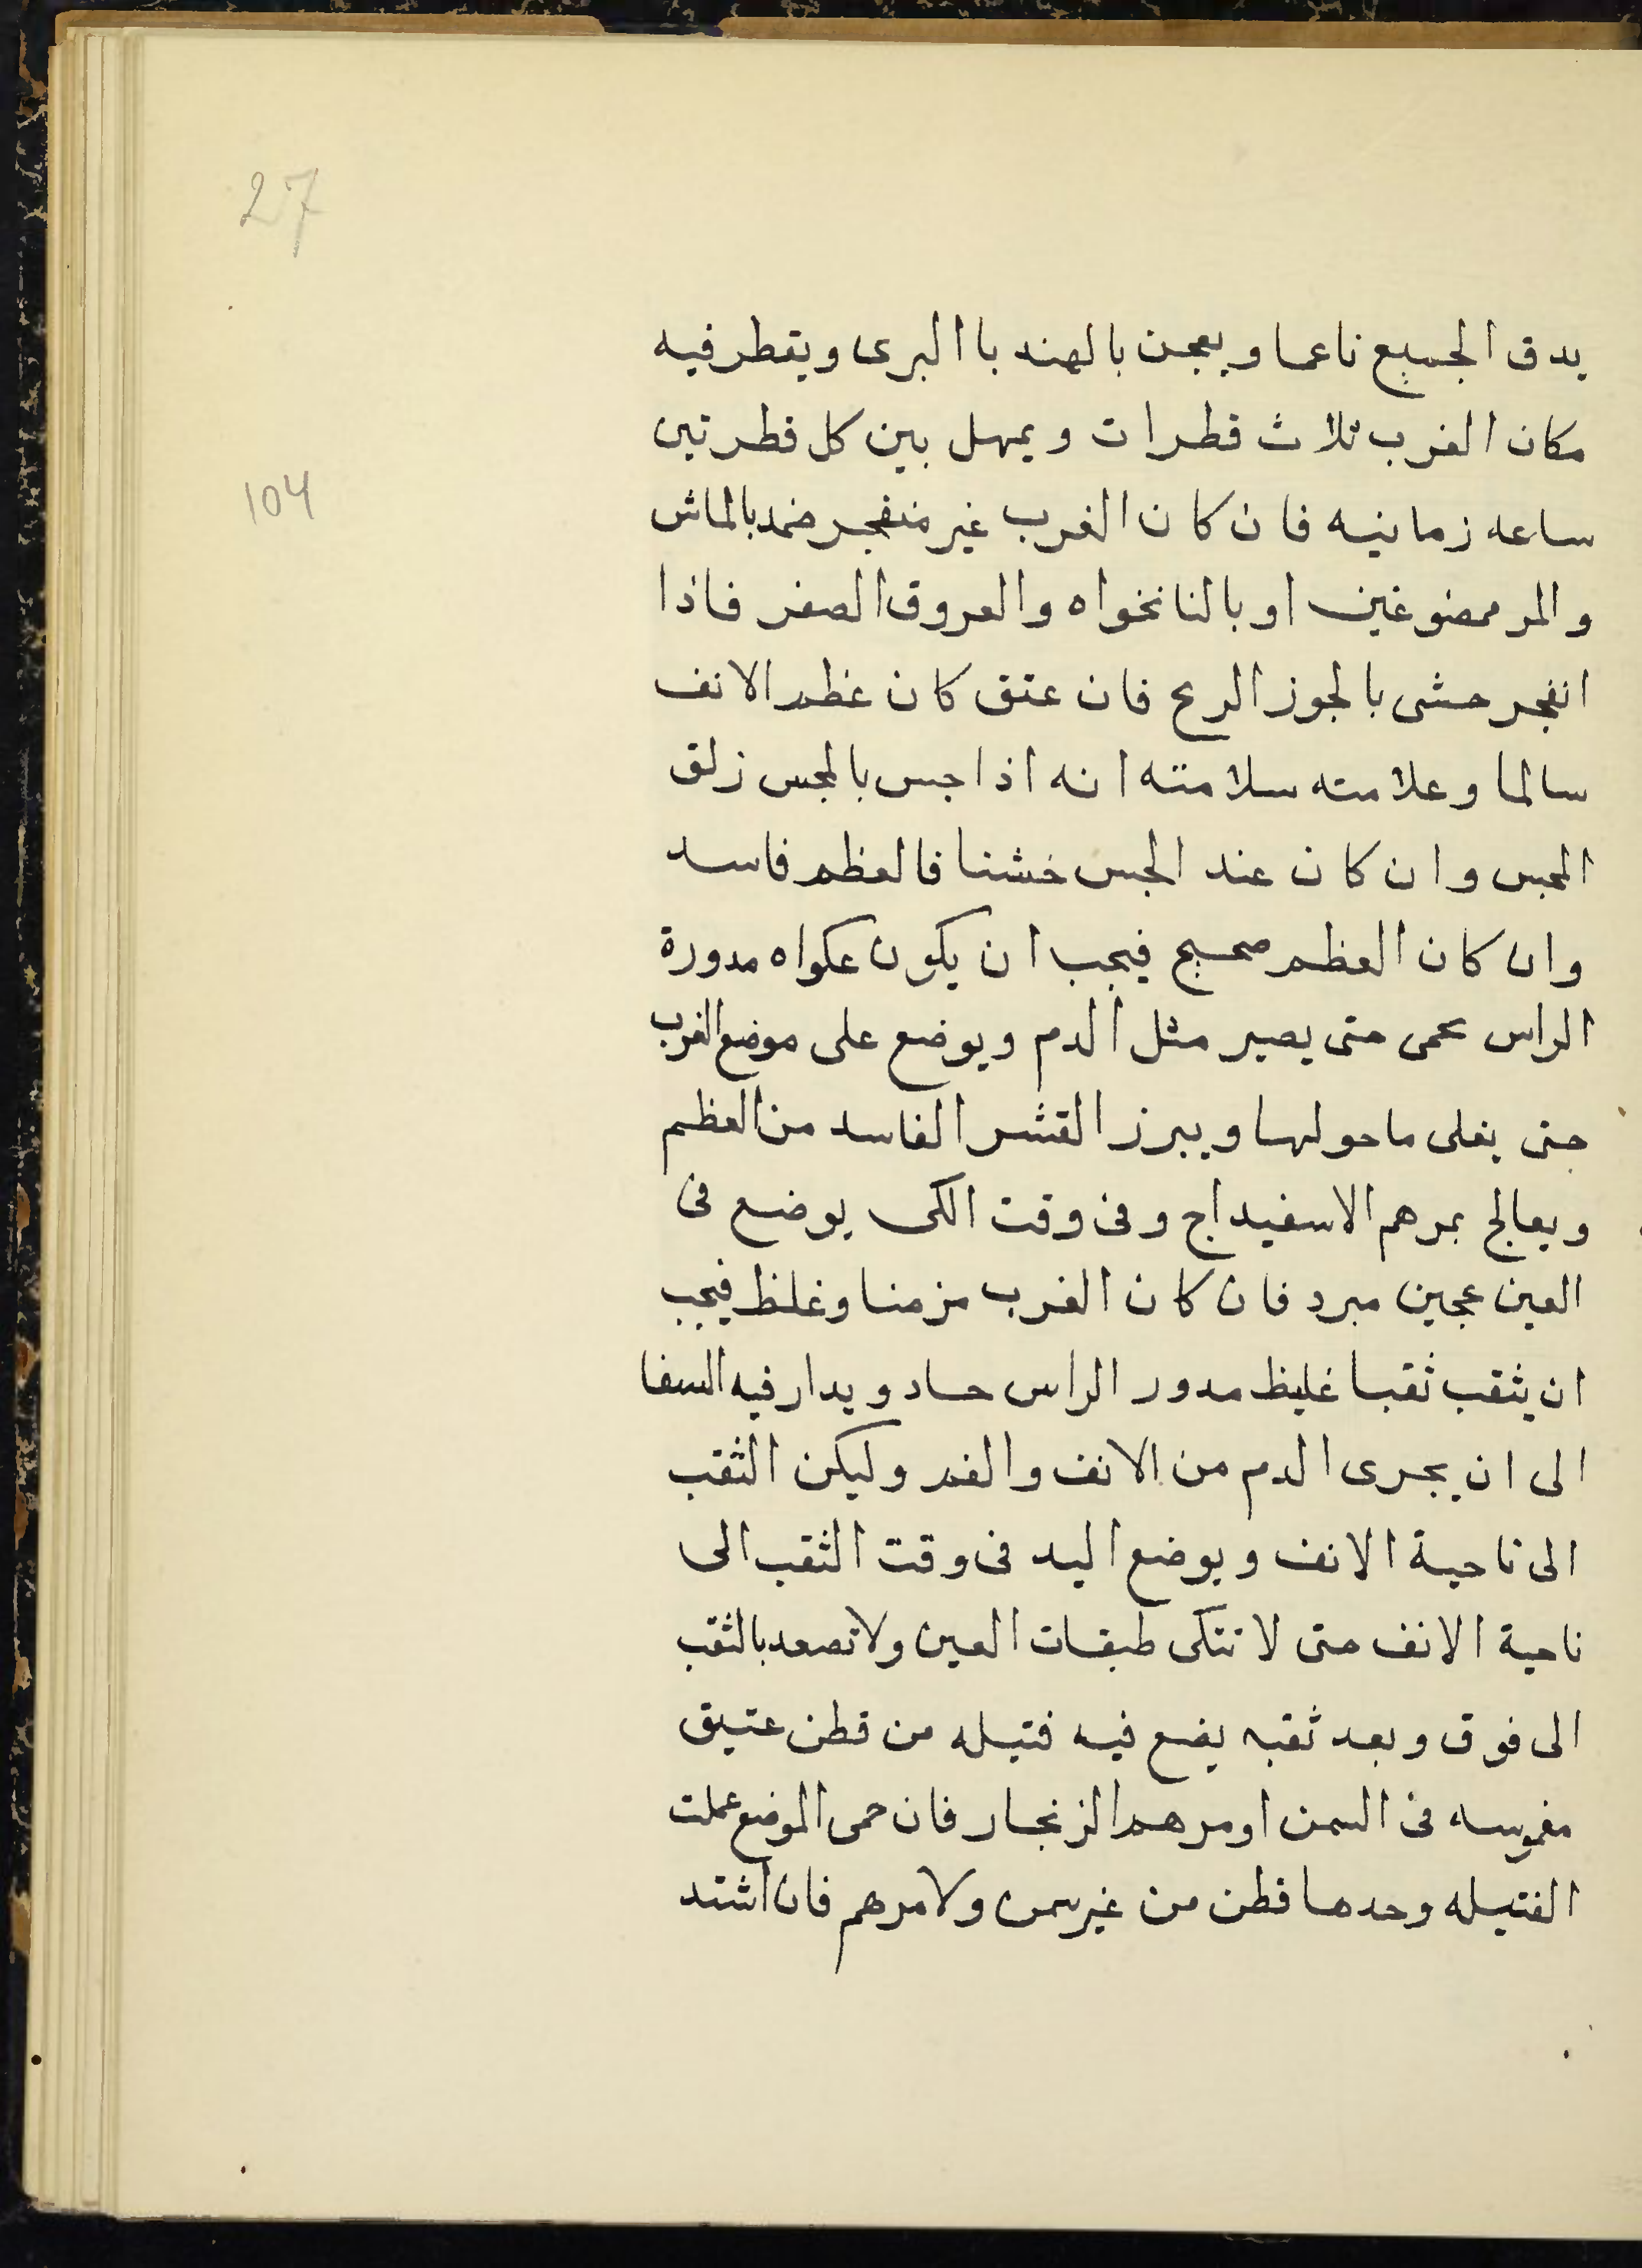 27
يدق الجميع ناعما ويعجن بالهند با البرى ويقطر فيه
مكان الغرب ثلاث قطرات ويمهل بين كل قطرتين
104
ساعه زمانيه فان كان الغرب غير منفجر ضمد بالماش
والمر ممضوغين او بالنانخواه والعروق الصفر فاذا
انفجر حشى بالجوز الريح فان عتق كان عظم الانف
سالما وعلامته سلامته انه اذا جس بالمجس زلق
المجس وان كان عند الجس خشنا فالعظم فاسد
وان كان العظم صحيح فيجب ان يكون عكواه مدورة
الراس تحمى حتى يصير مثل الدم ويوضع على موضع الغرب
حتى يغلى ماحولها ويبرز القشر الفاسد من العظم
ويعالج بمرهم الاسفيداج وفى وقت الكى يوضع فى
العين عجين مبرد فان كان الغرب مزمنا وغلظ فيجب
ان يثقب ثقبا غليظ مدور الراس حاد ويدار فيه السفا
الى ان يجرى الدم من الانف والفم وليكن الثقب
الى ناحية الانف ويوضع اليد فى وقت الثقب الى
ناحية الانف حتى لا تتكى طبقات العين ولا تصعد بالثقب
الى فوق وبعد ثقبه يضع فيه فتيله من قطن عتيق
مغموسه فى السمن او مرهم الزنجار فان حمى الموضع عملت
الفتيله وحدها قطن من غير سمن ولا مرهم فان اشتد